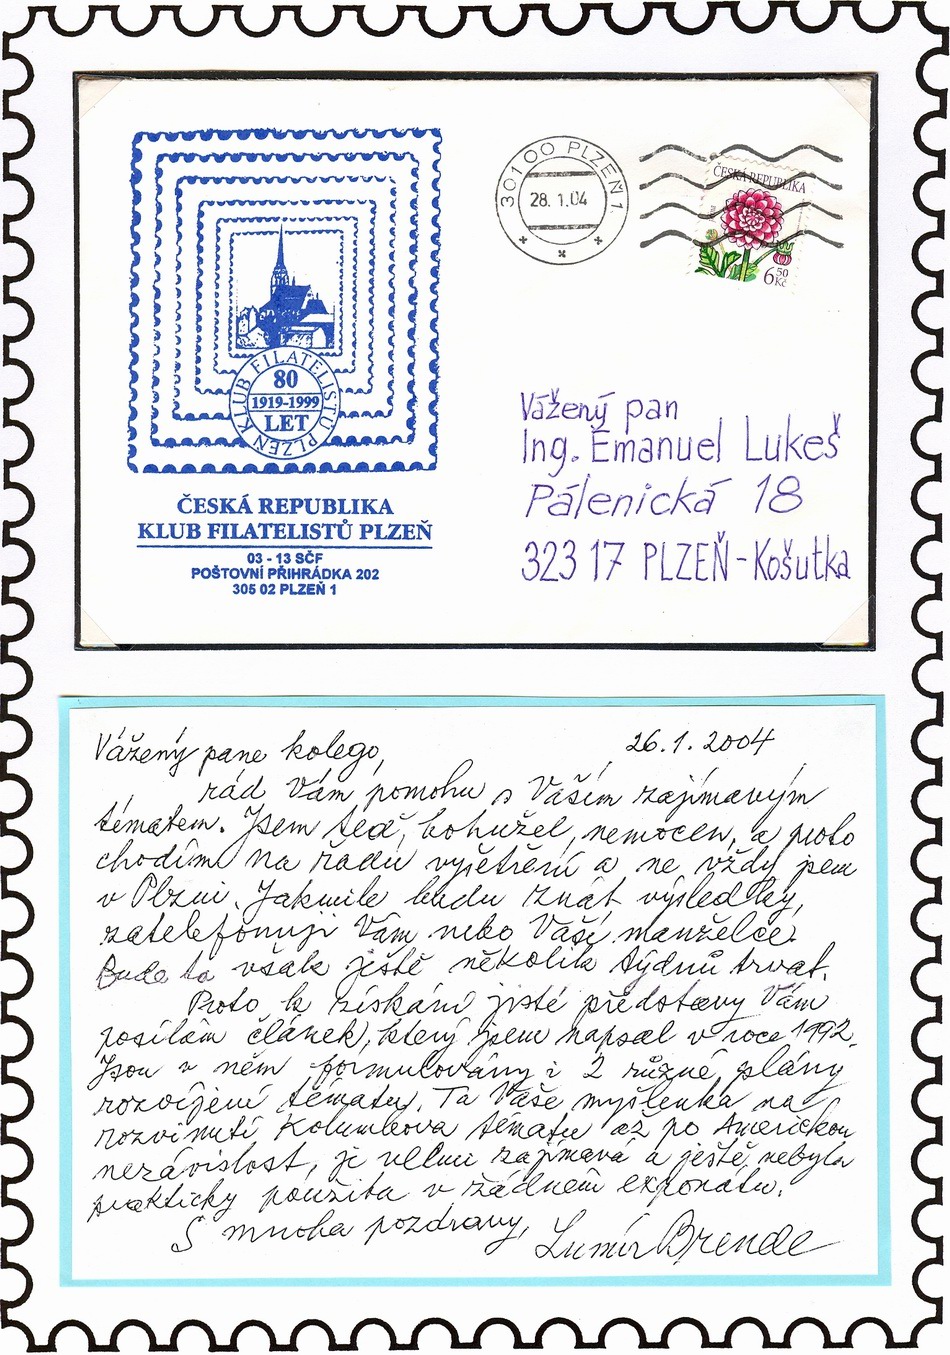 30100 PLZEŇ 1
28. 1. 04
ČESKÁ REPUBLIKA
6 50 Kč
KLUB FILATELISTŮ PLZEŇ
80
1919-1999
LET
ČESKÁ REPUBLIKA
KLUB FILATELISTŮ PLZEŇ
03 - 13 SČF
POŠTOVNÍ PŘIHRÁDKA 202
305 02 PLZEŇ 1
Vážený pan
Ing. Emanuel Lukeš
Pálenická 18
323 17 PLZEŇ - Košutka
Vážený pane kolego,
26. 1. 2004
rád Vám pomohu s Vaším zajímavým
tématem. Jsem teď, bohužel, nemocen, a proto
chodím na řadu vyšetření a ne vždy jsem
v Plzni. Jakmile budu znát výsledky,
zatelefonuji Vám nebo Vaší manželce.
Bude to však ještě několik týdnů trvat.
Proto k získání jisté představy Vám
posílám článek, který jsem napsal v roce 1992.
Jsou v něm formulovány i 2 různé plány
rozvíjení tématu. Ta Vaše myšlenka na
rozvinutí Kolumbova tématu až po Americkou
nezávislost, je velmi zajímavá a ještě nebyla
prakticky použita v žádném exponátu.
S mnoha pozdravy,
Lumír Brendl